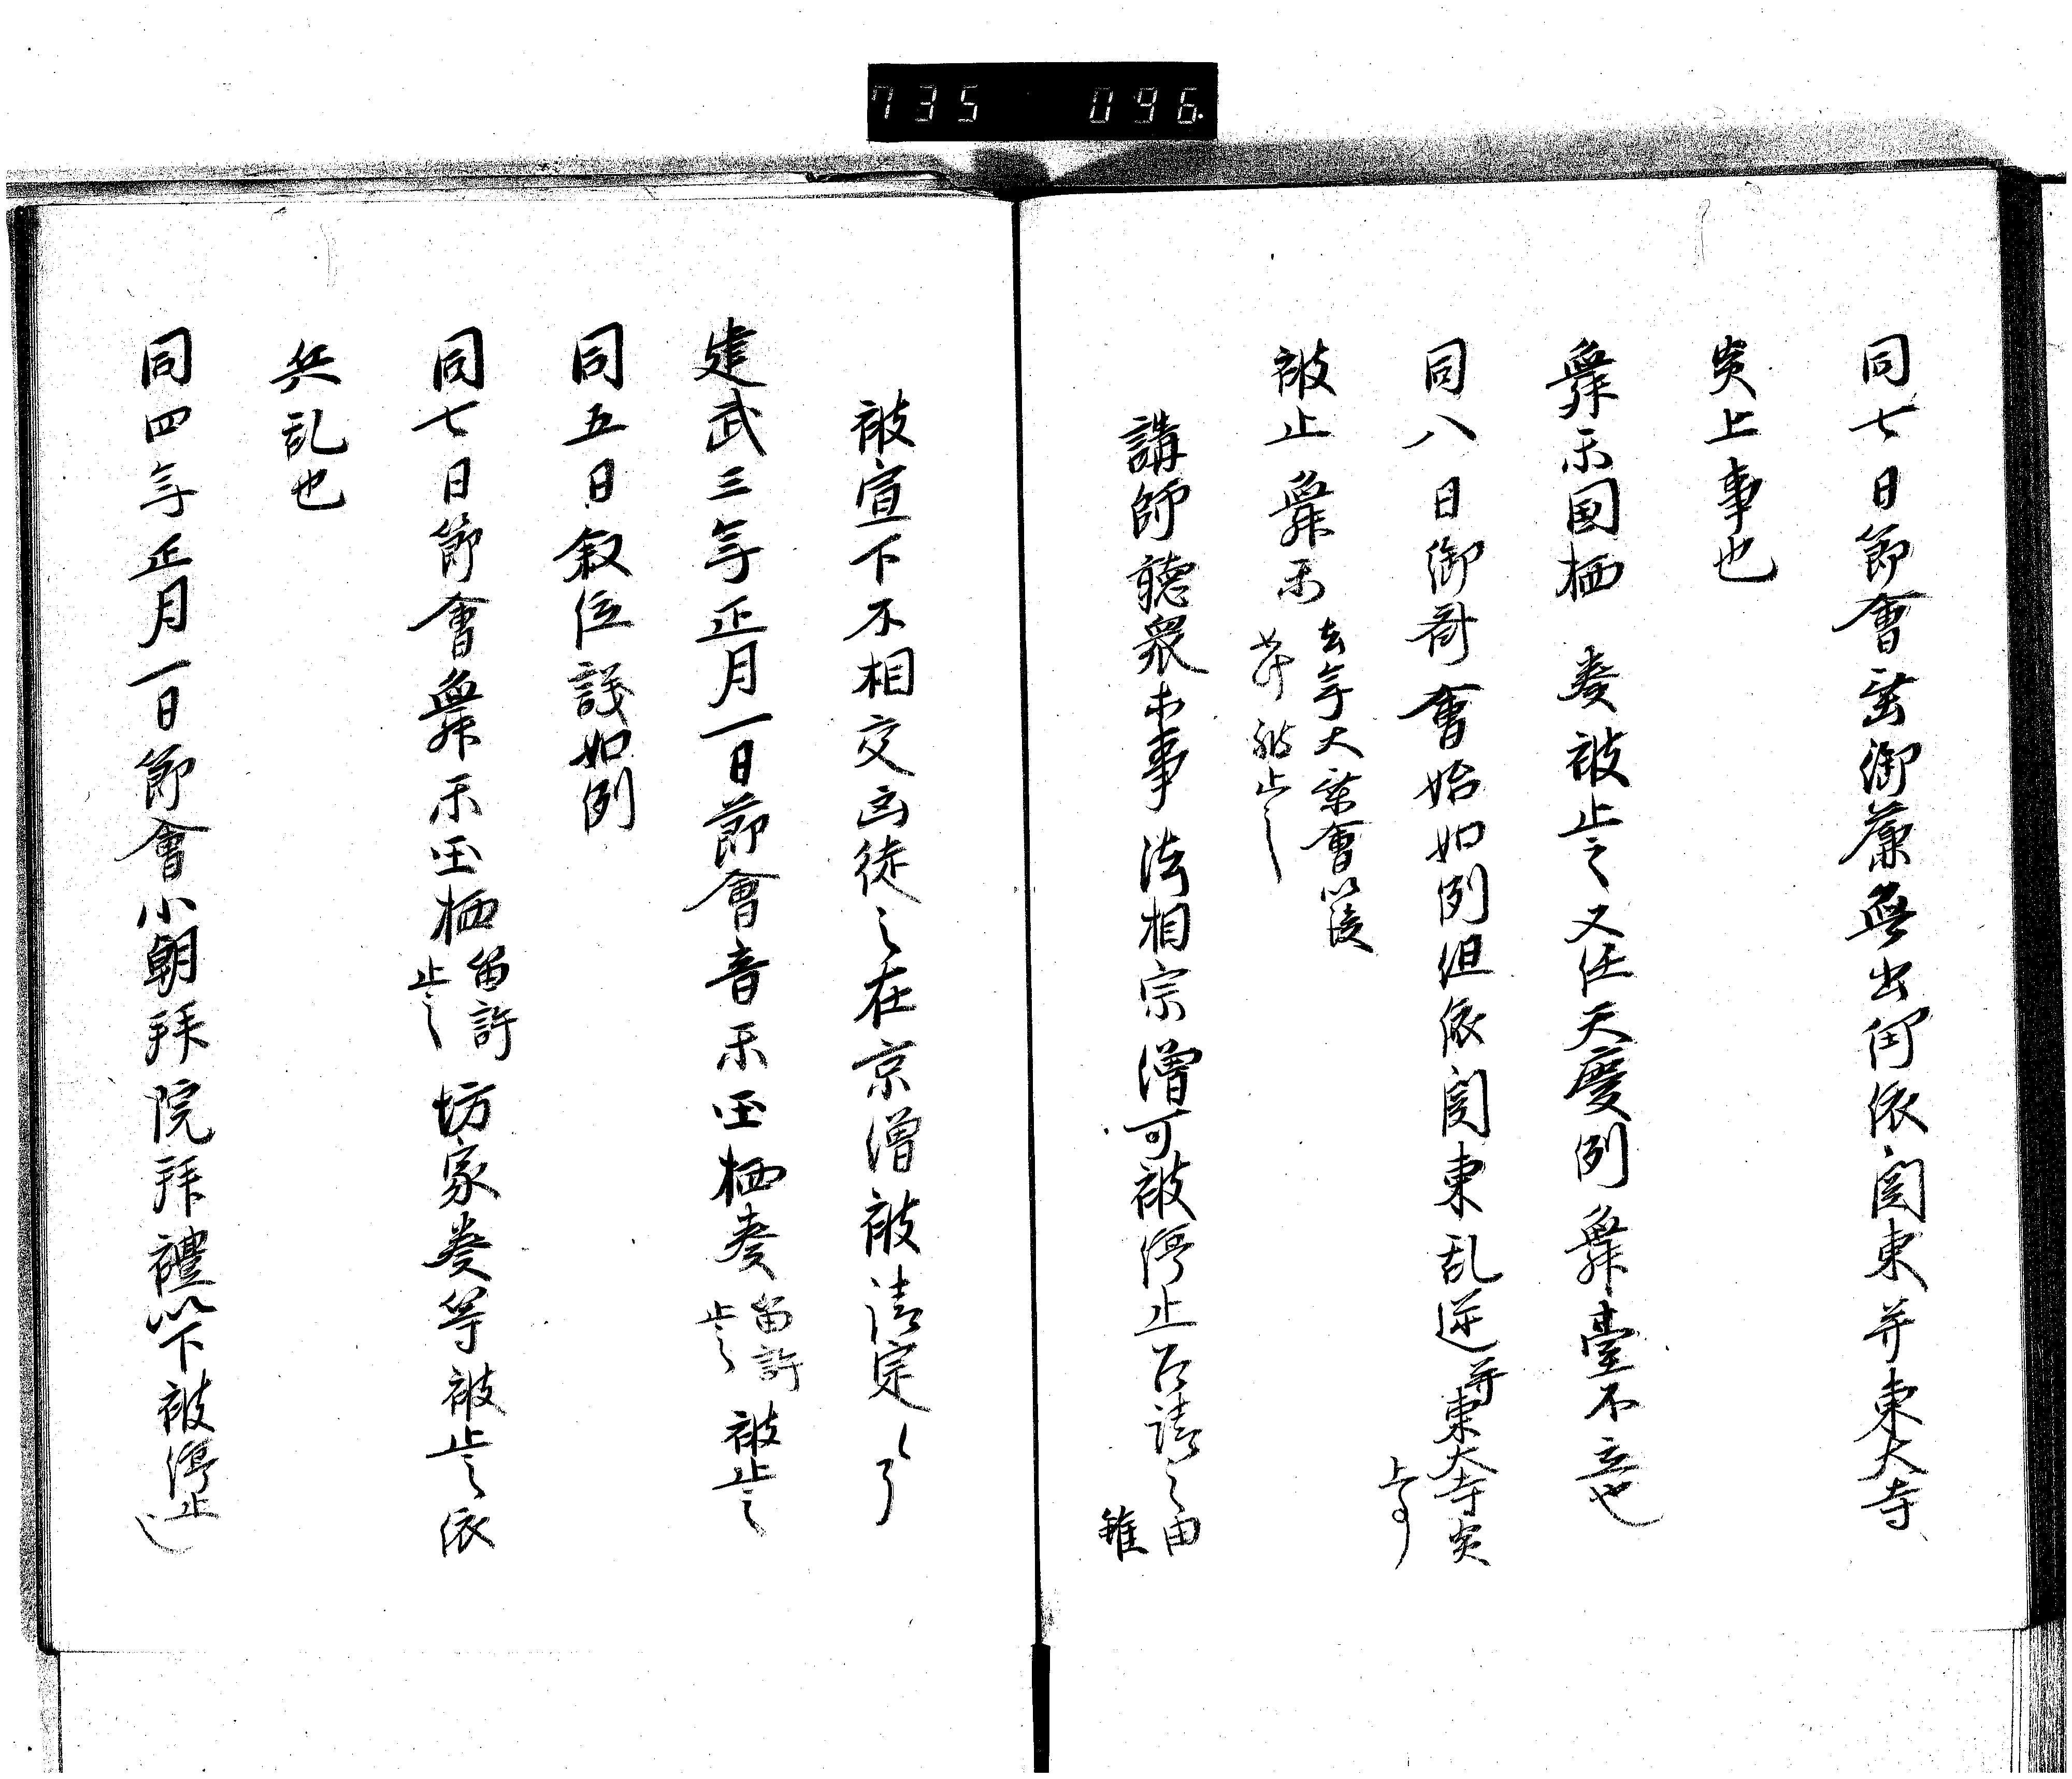 735 096
同七日節會垂御簾無出御依関東并東大寺
炎上事也
舞楽国栖奏被止之又任天慶例舞臺不立也
同八日御斎會始如例但依関東乱逆并東大寺炎
上事
被止舞楽去年大嘗會以後
被止之
講師聴衆等事法相宗僧可被停止召請之由
雖
被宣下不相交凶徒之在京僧被請定了
建武三年正月一日節會音楽国栖奏笛許
止之被止之
同五日叙位議如例
同七日節會舞楽国栖笛許
止之坊家奏等被止之依
兵乱也
同四年正月一日節會小朝拝院拝禮以下被停止